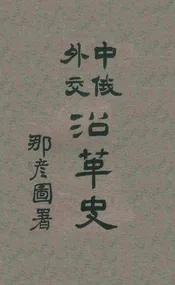 中俄
外交
沿革史
那彦圖署